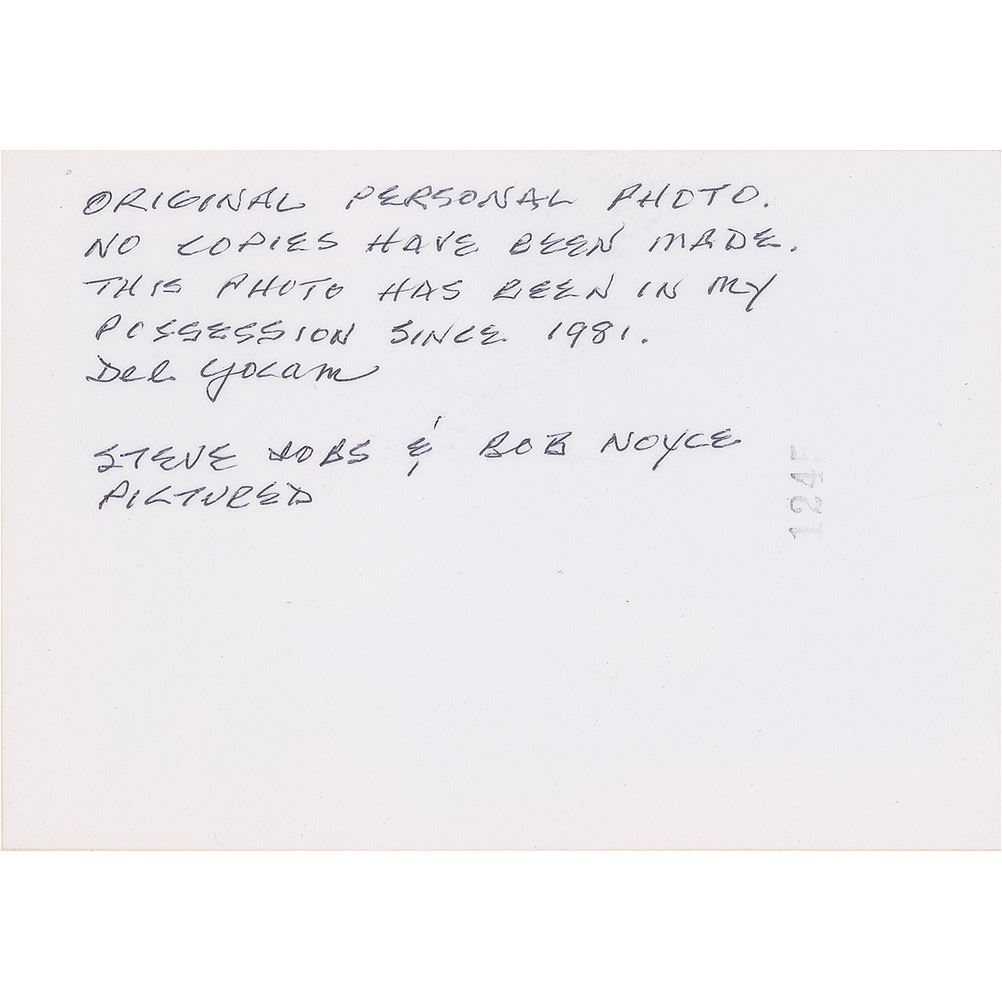 ORIGINAL PERSONAL PHOTO.
NO COPIES HAVE BEEN MADE.
THIS PHOTO HAS BEEN IN MY
POSSESSION SINCE 1981.
Del Yocam
STEVE JOBS & BOB NOYCE
PICTURED